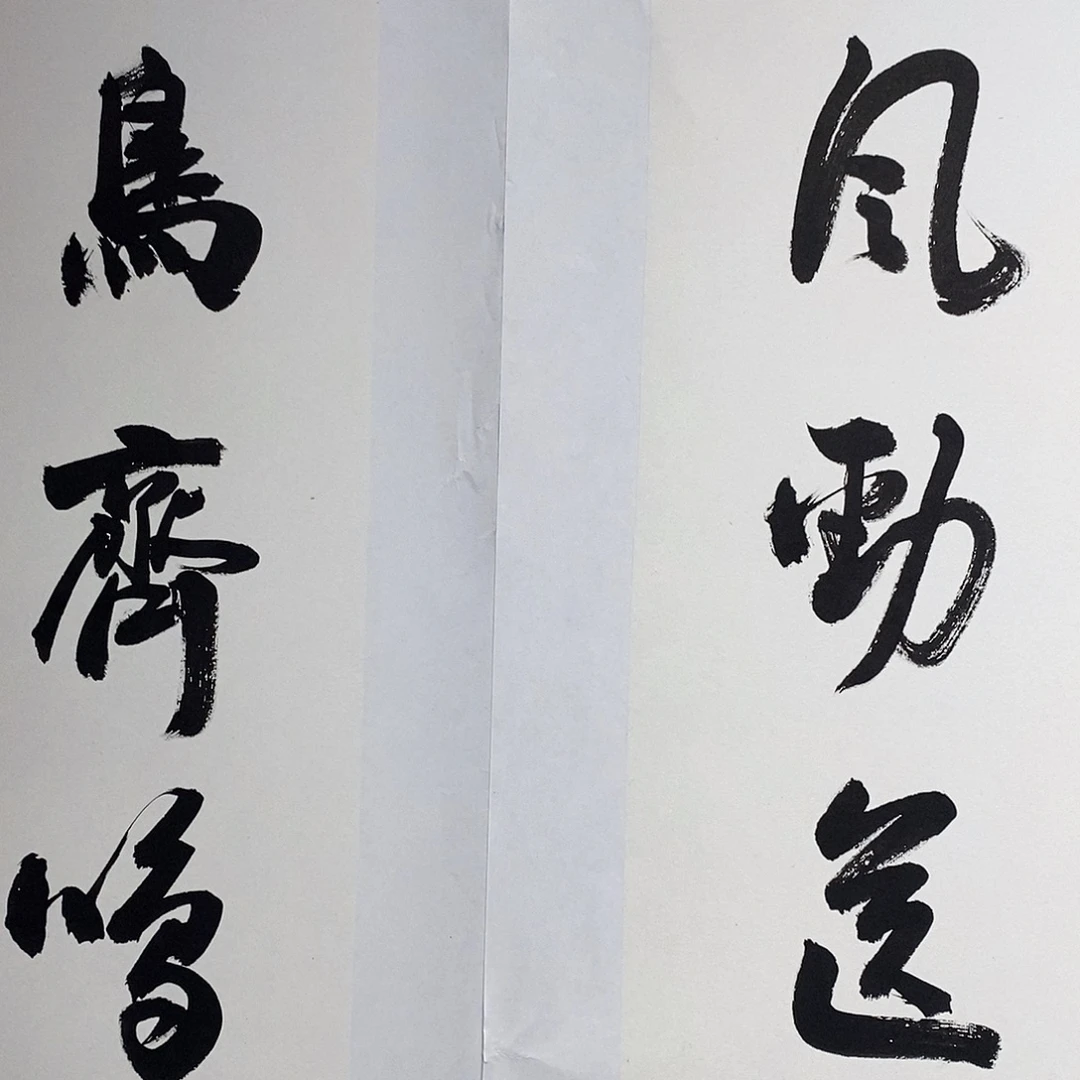 風勁送
鳥齊鳴